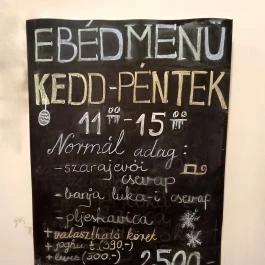 EBÉDMENÜ
KEDD-PÉNTEK
11 00 - 15 00
Normál adag:
- szarajevói
csevap
- banja luka-i csevap
- pljeskavica
+ választható köret
+ joghurt (390,-)
+ leves (500.-)
2500.-